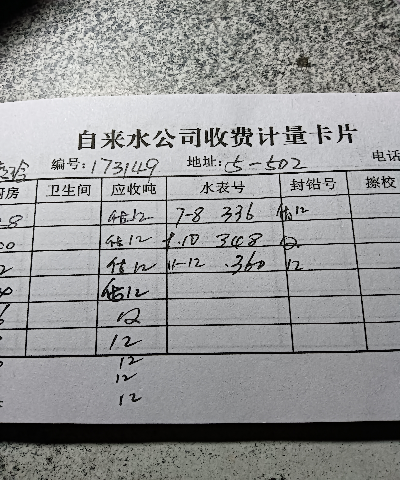 自来水公司收费计量卡片
编号:173149 地址:15-502 电话
厨房 卫生间 应收吨 水表号 封铅号 擦校
8 估12 7-8 336 估12
00 估12 9.10 348 12
2 估12 11-12 .360 12
00 估12
12
12
12
12
12